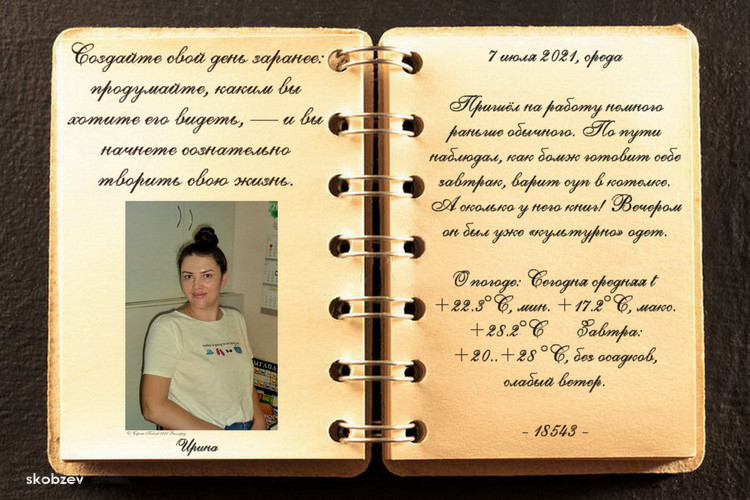 Создайте свой день заранее:
продумайте, каким вы
хотите его видеть, — и вы
начнете сознательно
творить свою жизнь.
Ирина
7 июля 2021, среда
Пришёл на работу немного
раньше обычного. По пути
наблюдал, как бомж готовит себе
завтрак, варит суп в котелке.
А сколько у него книг! Вечером
он был уже «культурно» одет.
О погоде: Сегодня средняя t
+22.3°C, мин. +17.2°C, макс.
+28.2°C Завтра:
+20..+28 °C, без осадков,
слабый ветер.
- 18543 -
skobzev